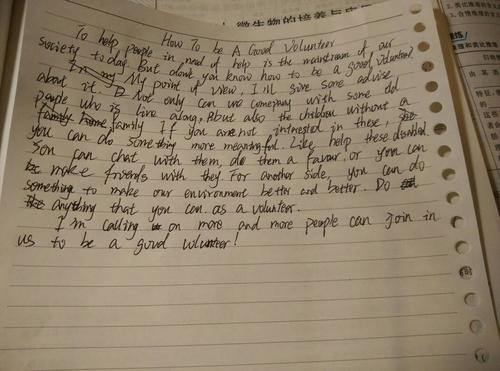 微生物的培养与应用
How To be A Good Volunteer
To help people in need of help is the mainstream of our
society today. But dont you know how to be a good volunteer?
My point of view, I'll give some advise
about it. Not only can we company with some old
people who is live along, But also the children without a
family. If you are not interested in these,
you can do something more meaningful. Like help these disabled.
You can chat with them, do them a favour, or you can
make friends with they. For another side, you can do
something to make our environment better and better. Do
anything that you can as a volunteer.
I'm calling on more and more people can join in
us to be a good volunteer!